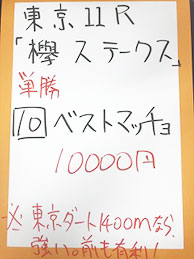 東京11R
「欅ステークス」
単勝
10 ベストマッチョ
10000円
※東京ダート1400mなら、
強い。前も有利!